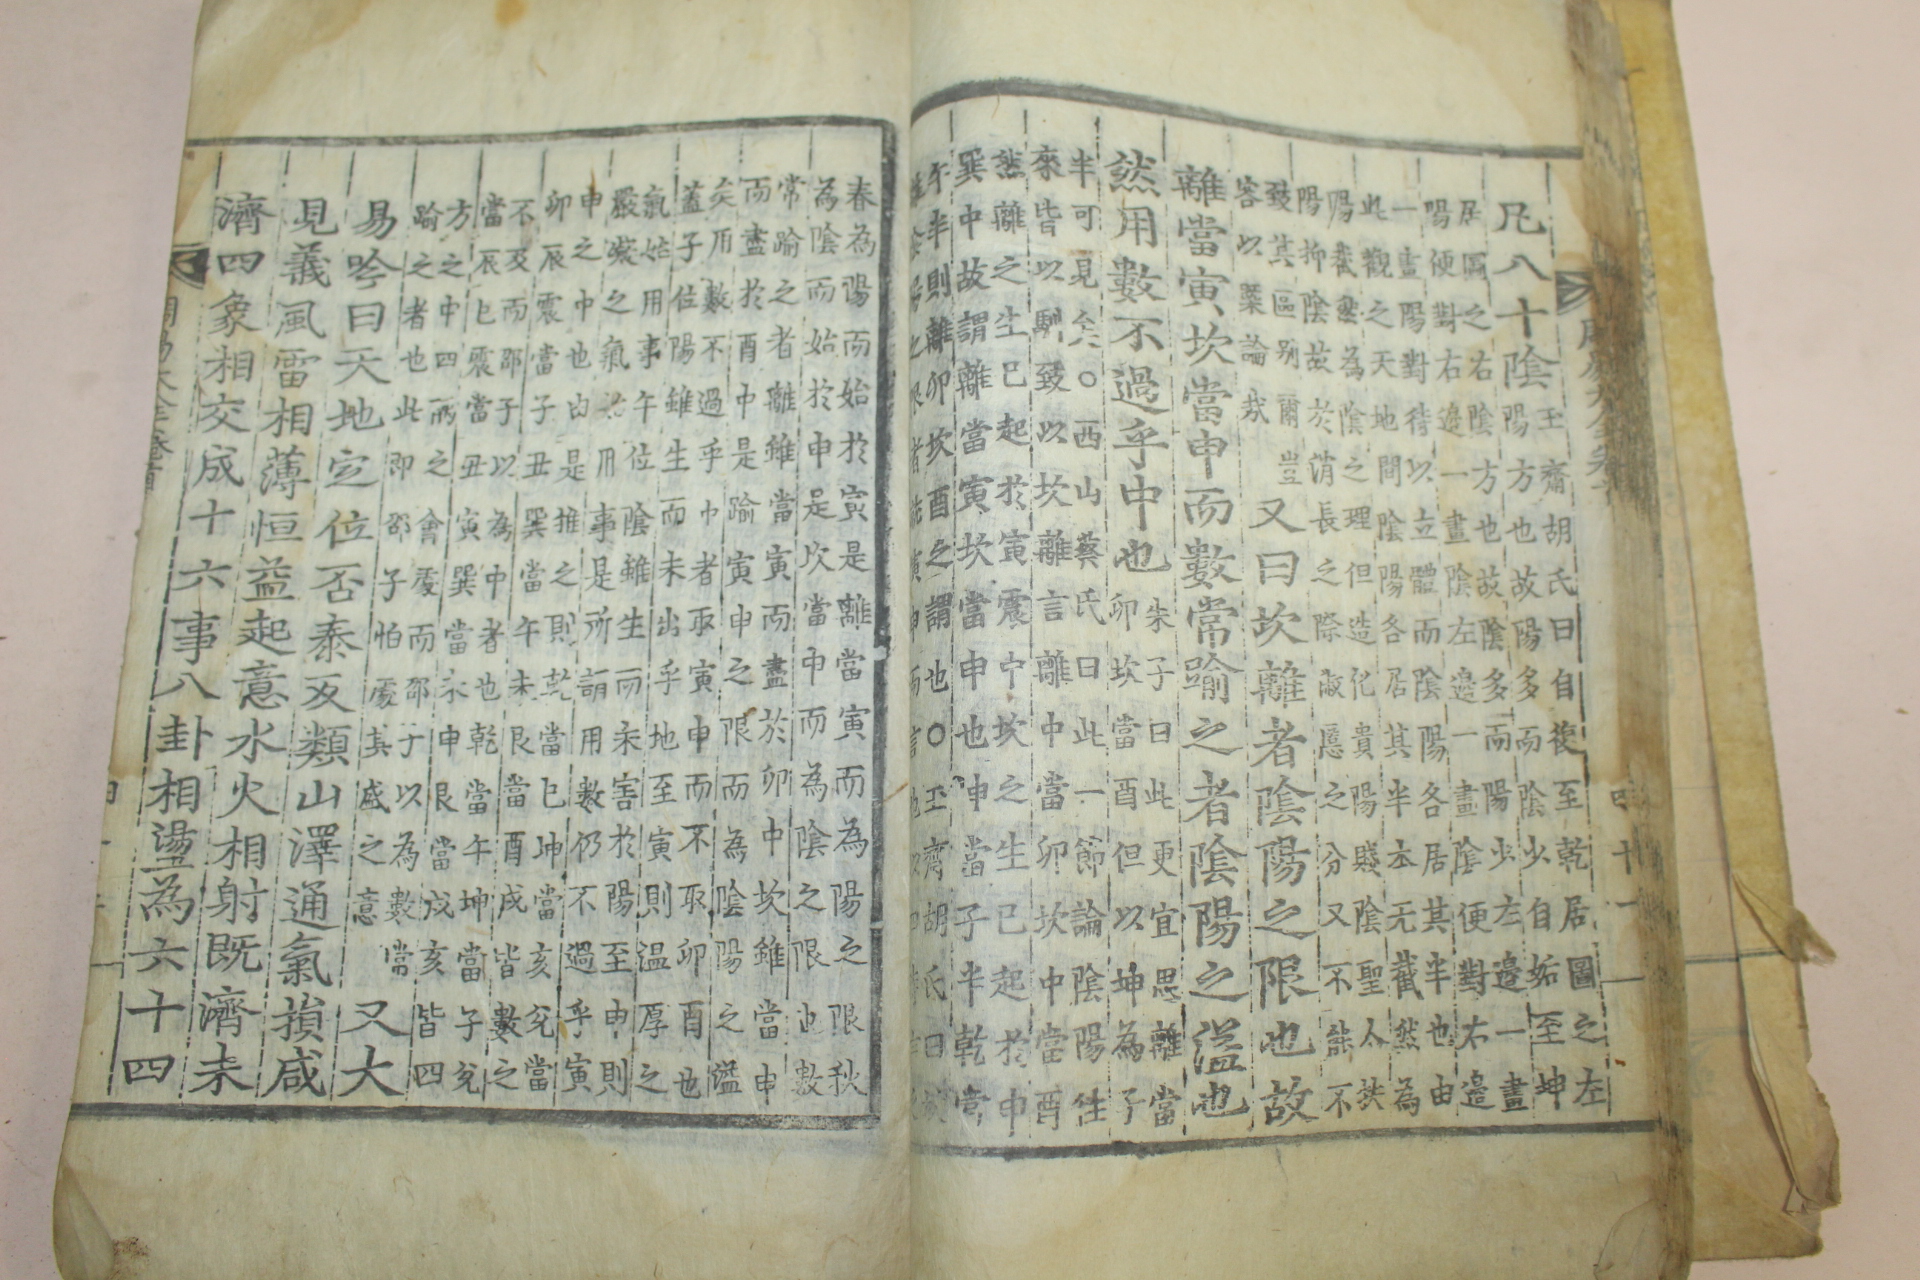 凡八十陰
玉齋胡氏曰自復至乾居圖之左
陽方也故陽多而陰少自姤至坤
居圖之右陰方也故陰多而陽少左邊一畫
陽便對右邊一畫陰左邊一畫陰便對右邊
一畫陽對待以立體而陰陽各居其半也由
此觀之天地間陰陽各居其半本无截然為
陽截然為陰之理但造化貴陽賤陰聖人扶
陽抑陰故於消長之際淑慝之分又不能不
致其區别爾豈
容以槩論哉
又曰坎離者陰陽之限也故
離當寅坎當申而數常踰之者陰陽之溢也
然用數不過乎中也
朱子曰此更宜思離當
卯坎當酉但以坤為子
半可見矣○西山蔡氏曰此一節論陰陽往
來皆以馴致以坎離言離中當卯坎中當酉
然離之生已起於寅震中坎之生已起於申
巽中故謂離當寅坎當申也申當子半乾當
午半則離卯坎酉之謂也○玉齋胡氏曰
春為陽而始於寅是離當寅而為陽之限秋
為陰而始於申是坎當申而為陰之限也數
常踰之者離雖當寅而盡於卯中坎雖當申
而盡於酉中是踰寅申之限而為陰陽之溢
矣用數不過乎中者取寅申而不取卯酉也
蓋子位陽雖生而未出乎地至寅則温厚之
氣始用事午位陰雖生而未害於陽至申則
嚴凝之氣始用事是所謂用數仍不過乎寅
申之中也由是推之則乾當巳坤當亥兌當
卯辰震當子丑巽當午未艮當酉戌皆數之
不及而邵子以為中者也乾當午坤當子兌
當辰巳震當丑寅巽當未申艮當戌亥皆四
方之中四兩之會處而邵子以為數常
踰之者也此即邵子怕處其盛之意
又大
易吟曰天地定位否泰反類山澤通氣損咸
見義風雷相薄恒益起意水火相射既濟未
濟四象相交成十六事八卦相盪為六十四